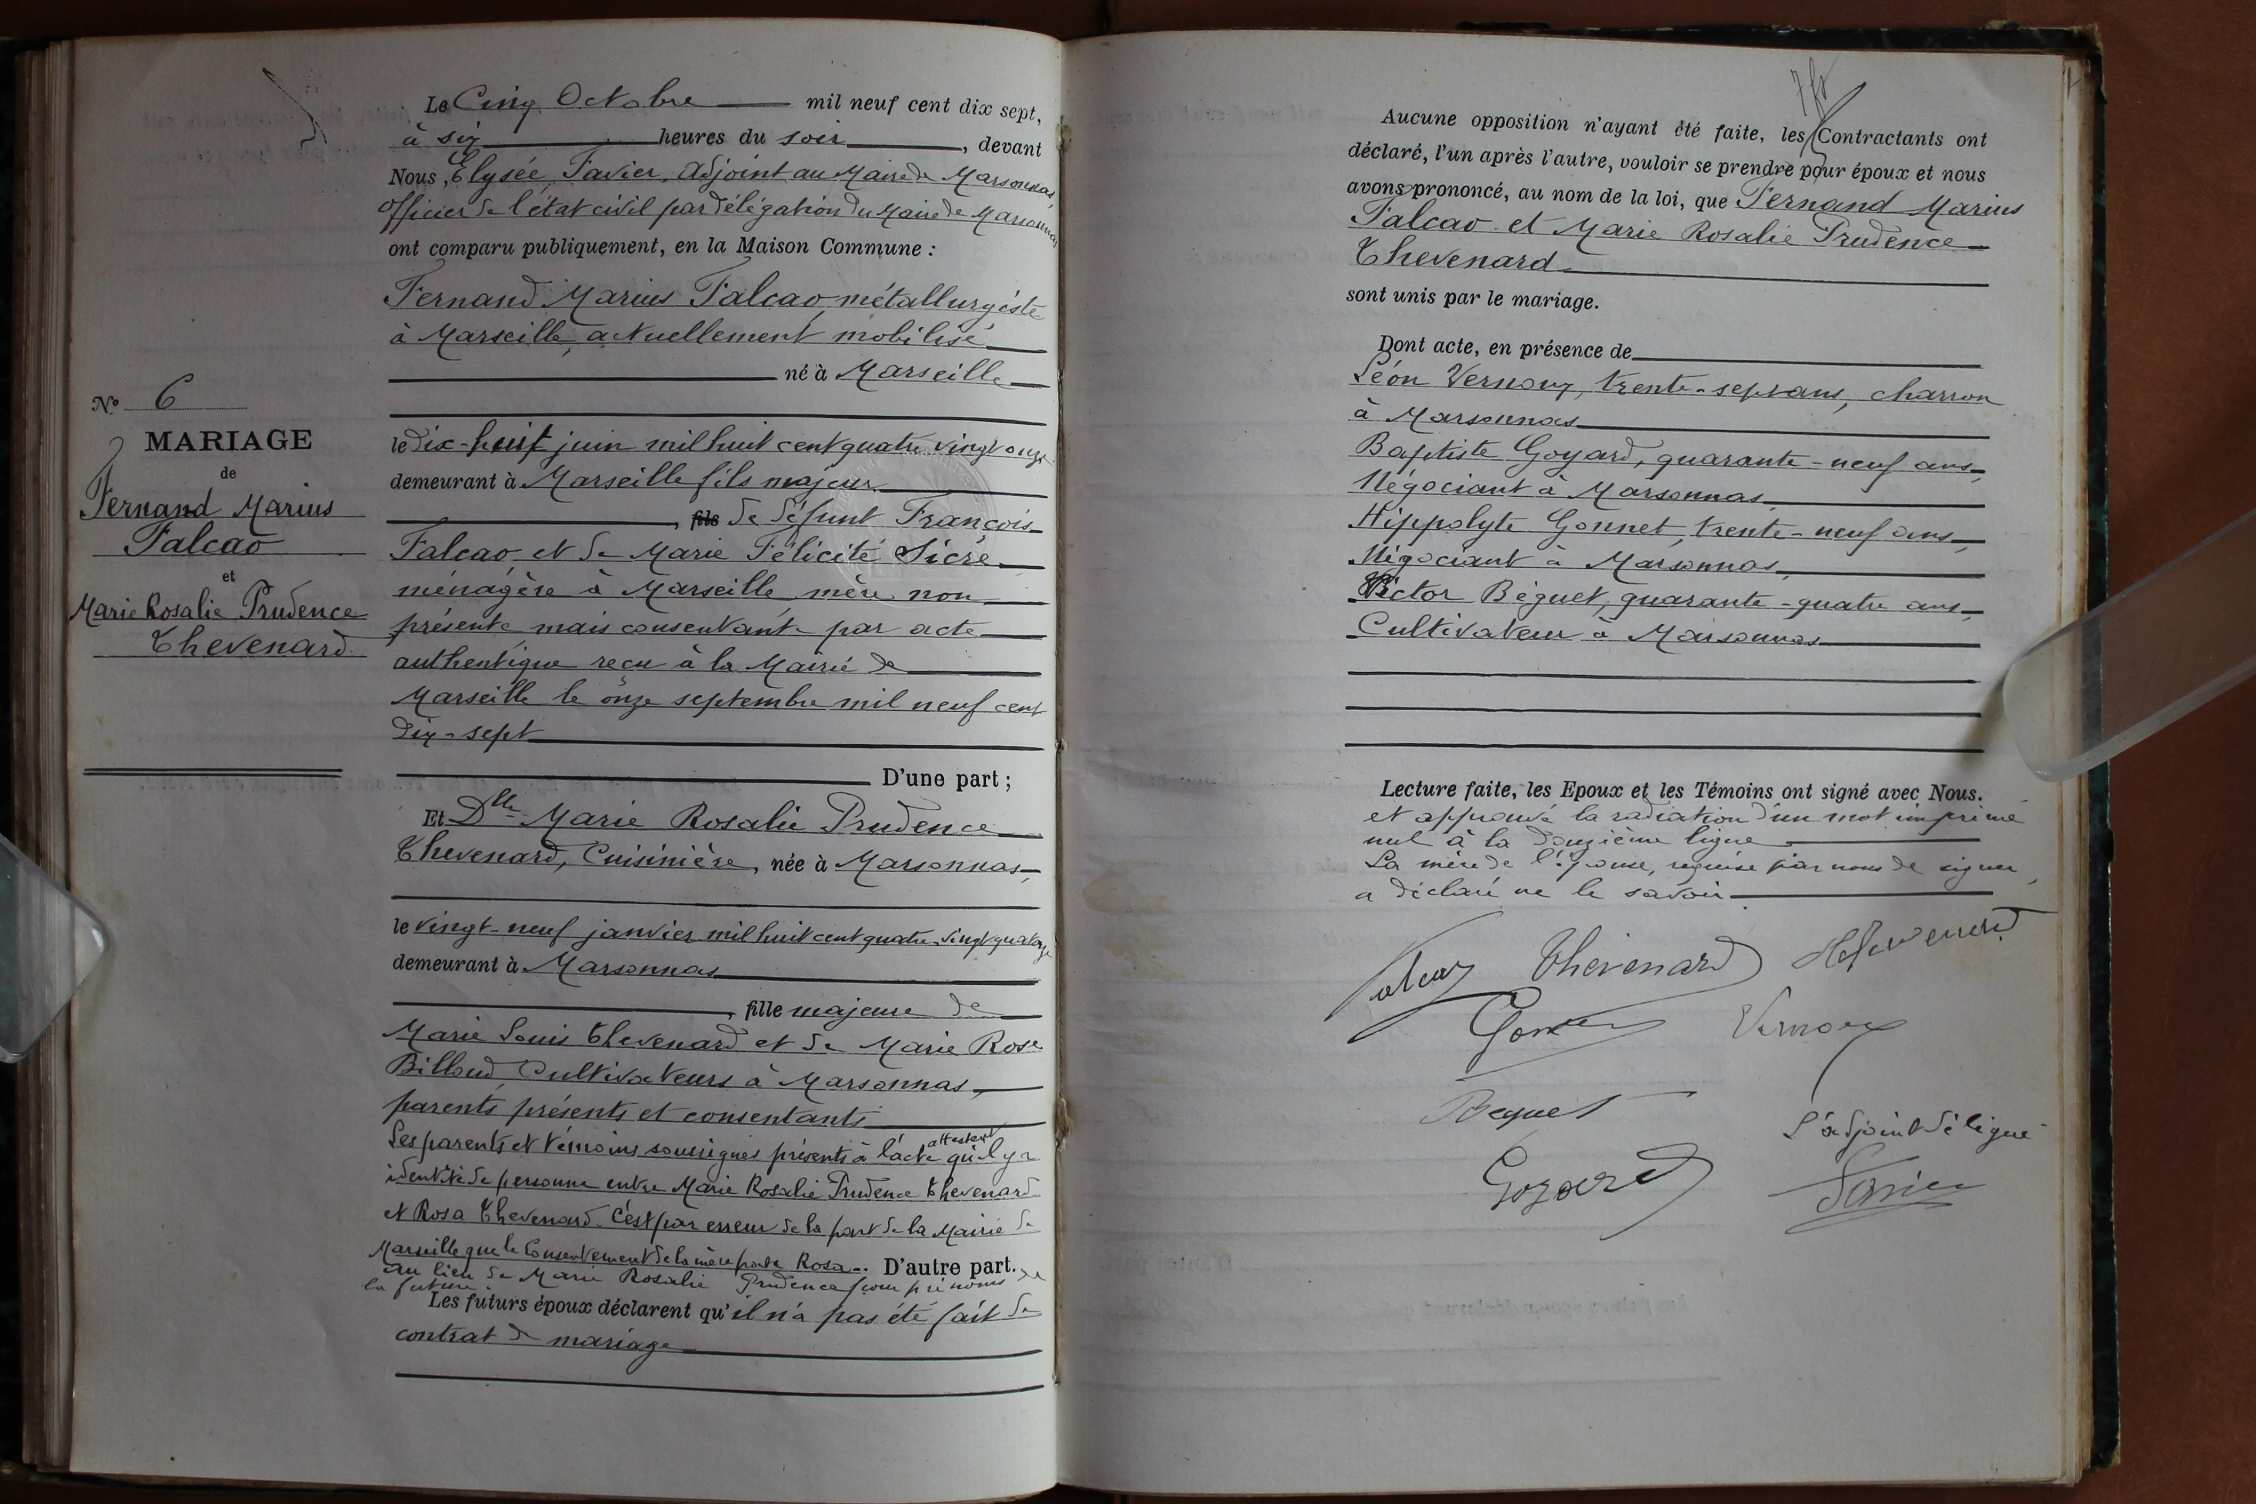 Le Cinq Octobre mil neuf cent dix sept,
à six heures du soir, devant
Nous, Elysée Favier, Adjoint au Maire de Marsonnas,
officier de l'état civil par délégation du Maire de Marsonnas
ont comparu publiquement, en la Maison Commune :
Fernand Marius Falcao, métallurgiste
à Marseille, actuellement mobilisé
né à Marseille
le dix-huit juin mil huit cent quatre vingt onze
demeurant à Marseille fils majeur
, fils de défunt François
Falcao, et de Marie Félicité Sicre
ménagère à Marseille, mère non
présente mais consentante par acte
authentique reçu à la Mairie de
Marseille le onze septembre mil neuf cent
dix-sept
D'une part ;
Et Dlle Marie Rosalie Prudence
Thevenard, Cuisinière, née à Marsonnas,
le vingt-neuf janvier mil huit cent quatre vingt quatorze
demeurant à Marsonnas
, fille majeure de
Marie Louis Thevenard et de Marie Rose
Billoud, Cultivateurs à Marsonnas,
parents présents et consentants
Les parents et témoins soussignés présents à l'acte attestent qu'il y a
identité de personne entre Marie Rosalie Prudence Thevenard
et Rosa Thevenard. C'est par erreur de la part de la Mairie de
Marseille que le Consentement de la mère porte Rosa. D'autre part.
au lieu de Marie Rosalie Prudence pour prénoms de
la future
Les futurs époux déclarent qu'il n'a pas été fait de
contrat de mariage
No 6
MARIAGE
de
Fernand Marius
Falcao
et
Marie Rosalie Prudence
Thevenard
Aucune opposition n'ayant été faite, les Contractants ont
déclaré, l'un après l'autre, vouloir se prendre pour époux et nous
avons prononcé, au nom de la loi, que Fernand Marius
Falcao et Marie Rosalie Prudence
Thevenard
sont unis par le mariage.
Dont acte, en présence de
Léon Vernoux, trente-sept ans, charron
à Marsonnas
Baptiste Goyard, quarante-neuf ans,
Négociant à Marsonnas
Hippolyte Gonnet, trente-neuf ans,
Négociant à Marsonnas,
Victor Béguet, quarante-quatre ans,
Cultivateur à Marsonnas
Lecture faite, les Epoux et les Témoins ont signé avec Nous.
et approuvé la radiation d'un mot imprimé
nul à la douzième ligne
La mère de l'épouse, requise par nous de signer
a déclaré ne le savoir
Falcao Thévenard Thevenard
Gonnet Vernoux
Beguet L'adjoint délégué
Goyard Favier